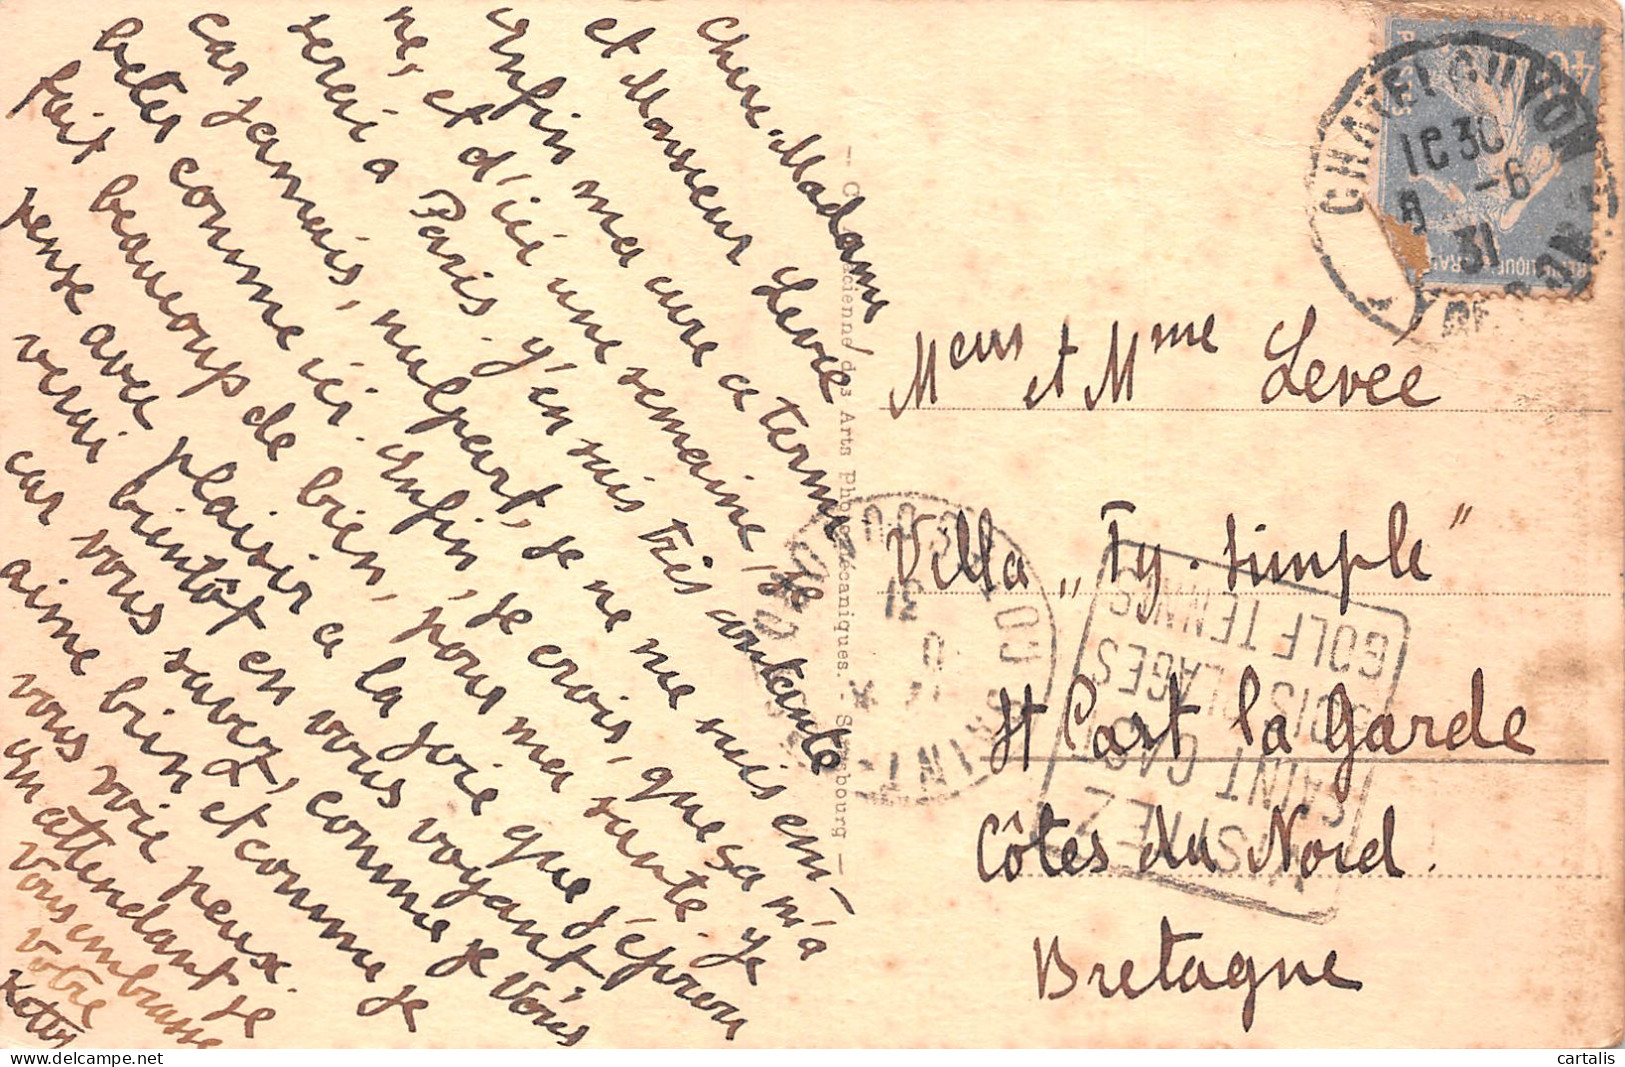 Chère Madame
et Monsieur Levée
enfin ma cure a termi
ne, et d'ici une semaine, je
serai a Paris. j'en suis très contente
car jamais, nulpart, je ne me suis em-
beter comme ici. enfin, je crois, que sa m'a
fait beaucoup de bien, pour ma santé. je
pense avec plaisir a la joie que j'éprou
verai bientôt en vous voyant,
car vous savez, comme je vous
aime bien et comme je
vous vois peux.
en attendant je
vous embrasse
votre
Ketty
Meur et Mme Levee
Villa „Ty. Simple"
St Cast la Garde
Côtes du Nord.
Bretagne
CHATELGUYON
31
VISITEZ
SAINT CAST
PLAGES
GOLF TENNIS
31
Arts Photomécaniques. Strasbourg —
40
cartalis